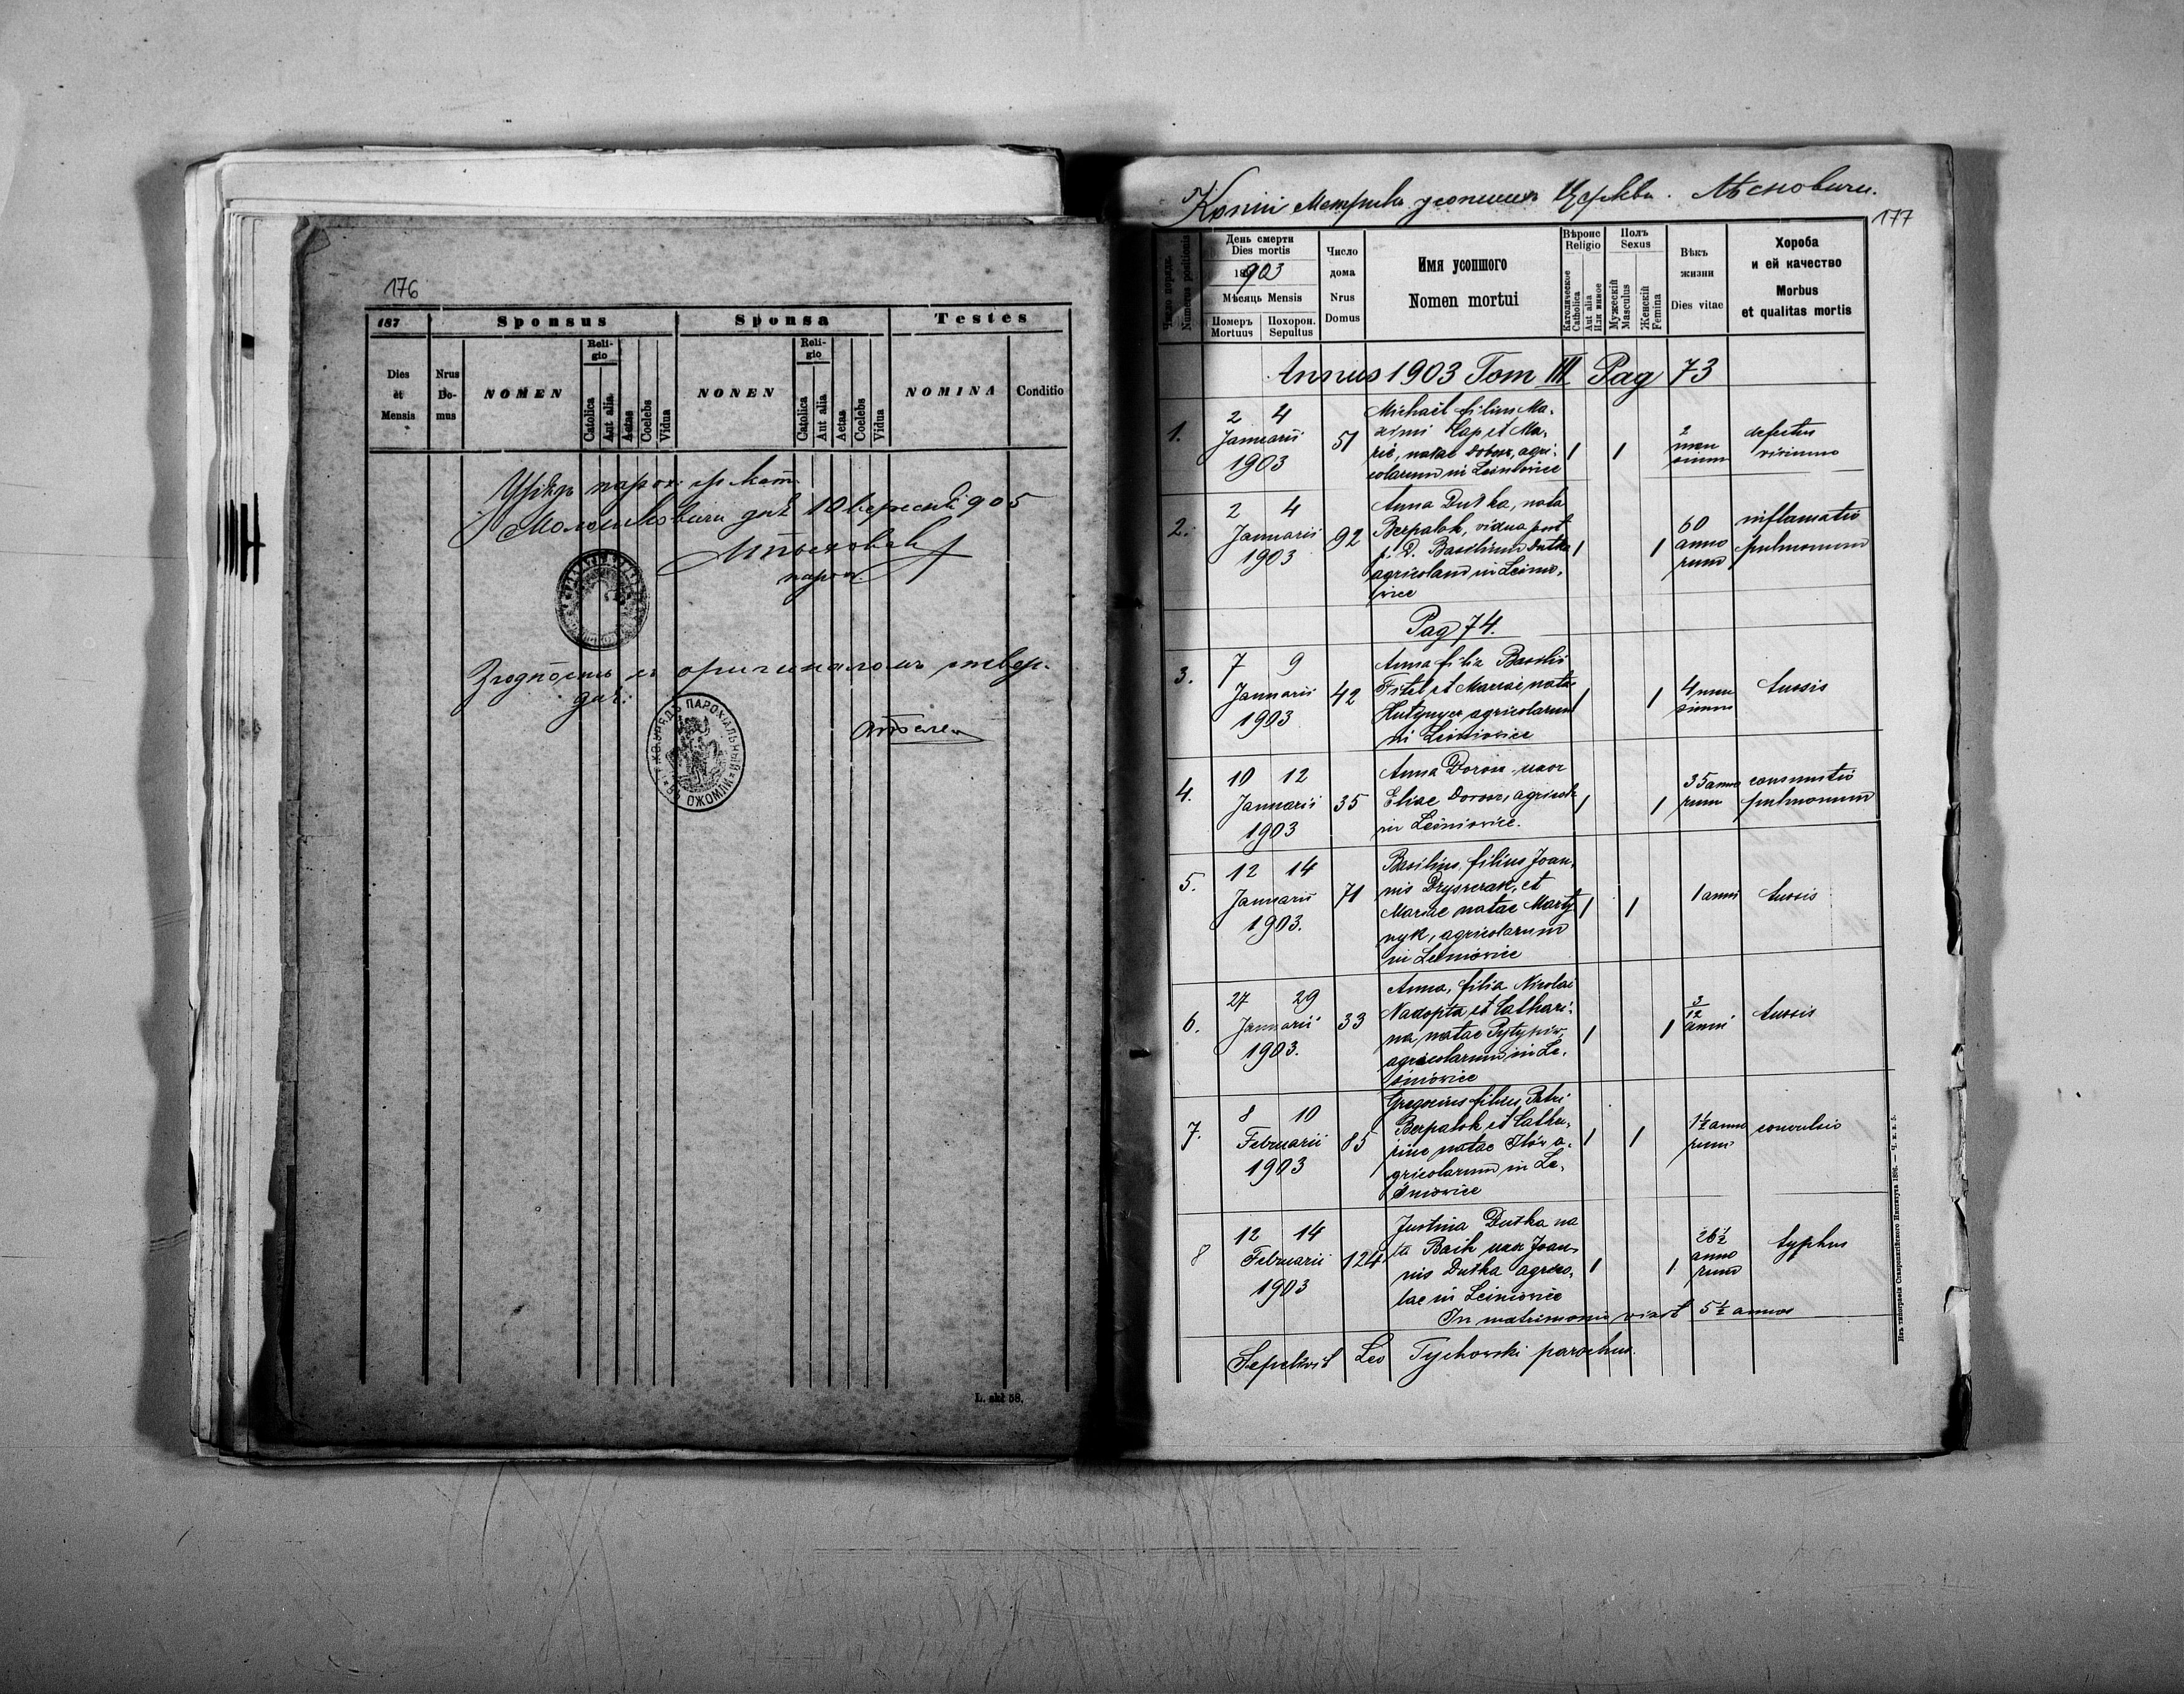 176
187
Sponsus
Sponsa
Testes
Dies
et
Mensis
Nrus
Do-
mus
NOMEN
Reli-
gio
Catolica
Aut alia
Aetas
Coelebs
Vidua
NONEN
Reli-
gio
Catolica
Aut alia
Aetas
Coelebs
Vidua
NOMINA
Conditio
Урядъ парох. гр. кат.
дня 10 вересня 905
парох
Згôдность съ оригиналомъ твер-
L. skł 58.
Копіи Метрикъ усопшихъ Церкви. Лѣсновичи.
177
Число порядк.
Numerus positionis
День смерти
Dies mortis
18903
Мѣсяць Mensis
Померъ
Mortuus
Похорон.
Sepultus
Число
дома
Nrus
Domus
Имя усопшого
Nomen mortui
Вѣроис
Religio
Католическое
Catholica
Aut alia
Или иное
Полъ
Sexus
Мужескій
Masculus
Женскій
Femina
Вѣкъ
жизни
Dies vitae
Хороба
и ей качество
Morbus
et qualitas mortis
Annus 1903 Tom III Pag 73
1.
2 4
Januarii
1903
51
Michaël filius Ma-
ximi Cap et Ma-
riae, natae Doboz, agri-
colarum in Leśniowice
1 1
2
men
sium
defectus
virium
2.
2 4
Januarii
1903
92
Anna Dutka, nata
Berpalok, vidua post
p. D. Basilium Dutka
agricolam in Leśnio-
wice
1 1
60
anno
rum
inflamatio
pulmonum
Pag 74.
3.
7 9
Januarii
1903
42
Anna filia Basilii
Fitel et Mariae natae
agricolarum
in Leśniowice
1 1
4 men
sium
tussis
4.
10 12
Januarii
1903
35
Anna Dorosz uxor
Eliae Dorosz, agricolae
in Leśniowice.
1 1
35 anno
rum
consumtio
pulmonum
5.
12 14
Januarii
1903.
71
Basilius, filius Joan-
nis et
Mariae natae Marty
nyk, agricolarum
in Leśniowice
1 1
1 anni
tussis
6.
27 29
Januarii
1903.
33
Anna, filia Nicolai
Nadopta et Cathari-
na, natae Pytypiw,
agricolarum in Le-
śniowice
1 1
3/12
anni
tussis
7.
8 10
Februarii
1903
85
Gregorius filius Petri
Berpalok et Catha-
rine natae Ilów a-
gricolarum in Le-
śniowice
1 1
1½ anno
rum
convulsio
8
12 14
Februarii
1903
124
Justina Dutka na
ta Baik uxor Joan-
nis Dutka agrico-
lae in Leśniowice
1 1
26½
anno
rum
typhus
In matrimonio vixit 5½ annos
Sepelivit Leo Tychowski parochus.
Изъ типографіи Ставропигійского Института 1896. — Ч. к. в. 5.